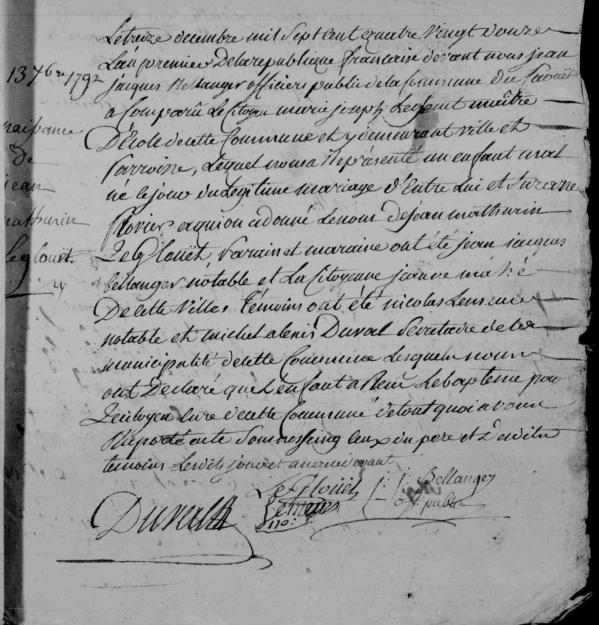 13 Xbre 1792
naissance
de
jean
mathurin
Leglouët
Le treize decembre mil sept cent quatre vingt douze
L'an premier de la republique francaise devant nous jean
jacques Bellanger officier public de la Commune du faouët
a Comparu Le Citoyen marie joseph maitre
D'Ecole de cette Commune et y demeurant ville et
Parroisse, Lequel nous a Représenté un enfant mal
né le jour du Legitime mariage d'Entre Lui et Suzanne
a qui on a donné Le nom de jean mathurin
Le Glouët Parain et maraine ont été jean jacques
bellanger notable et La Citoyenne jeanne mahé
De cette Ville, temoins ont été nicolas
notable et michel alexis Duval Secretaire de la
municipalité de cette Commune Lesquels nous
ont Declaré que L'enfant a Reçu Le bapteme par
Le citoyen Curé de cette Commune de tout quoi avons
Rapporté acte Sous nos Seing Ceux du pere et Des dits
temoins Les dits jour et an que devant
Duval
Le Glouët
J: J: Bellanger
off. public